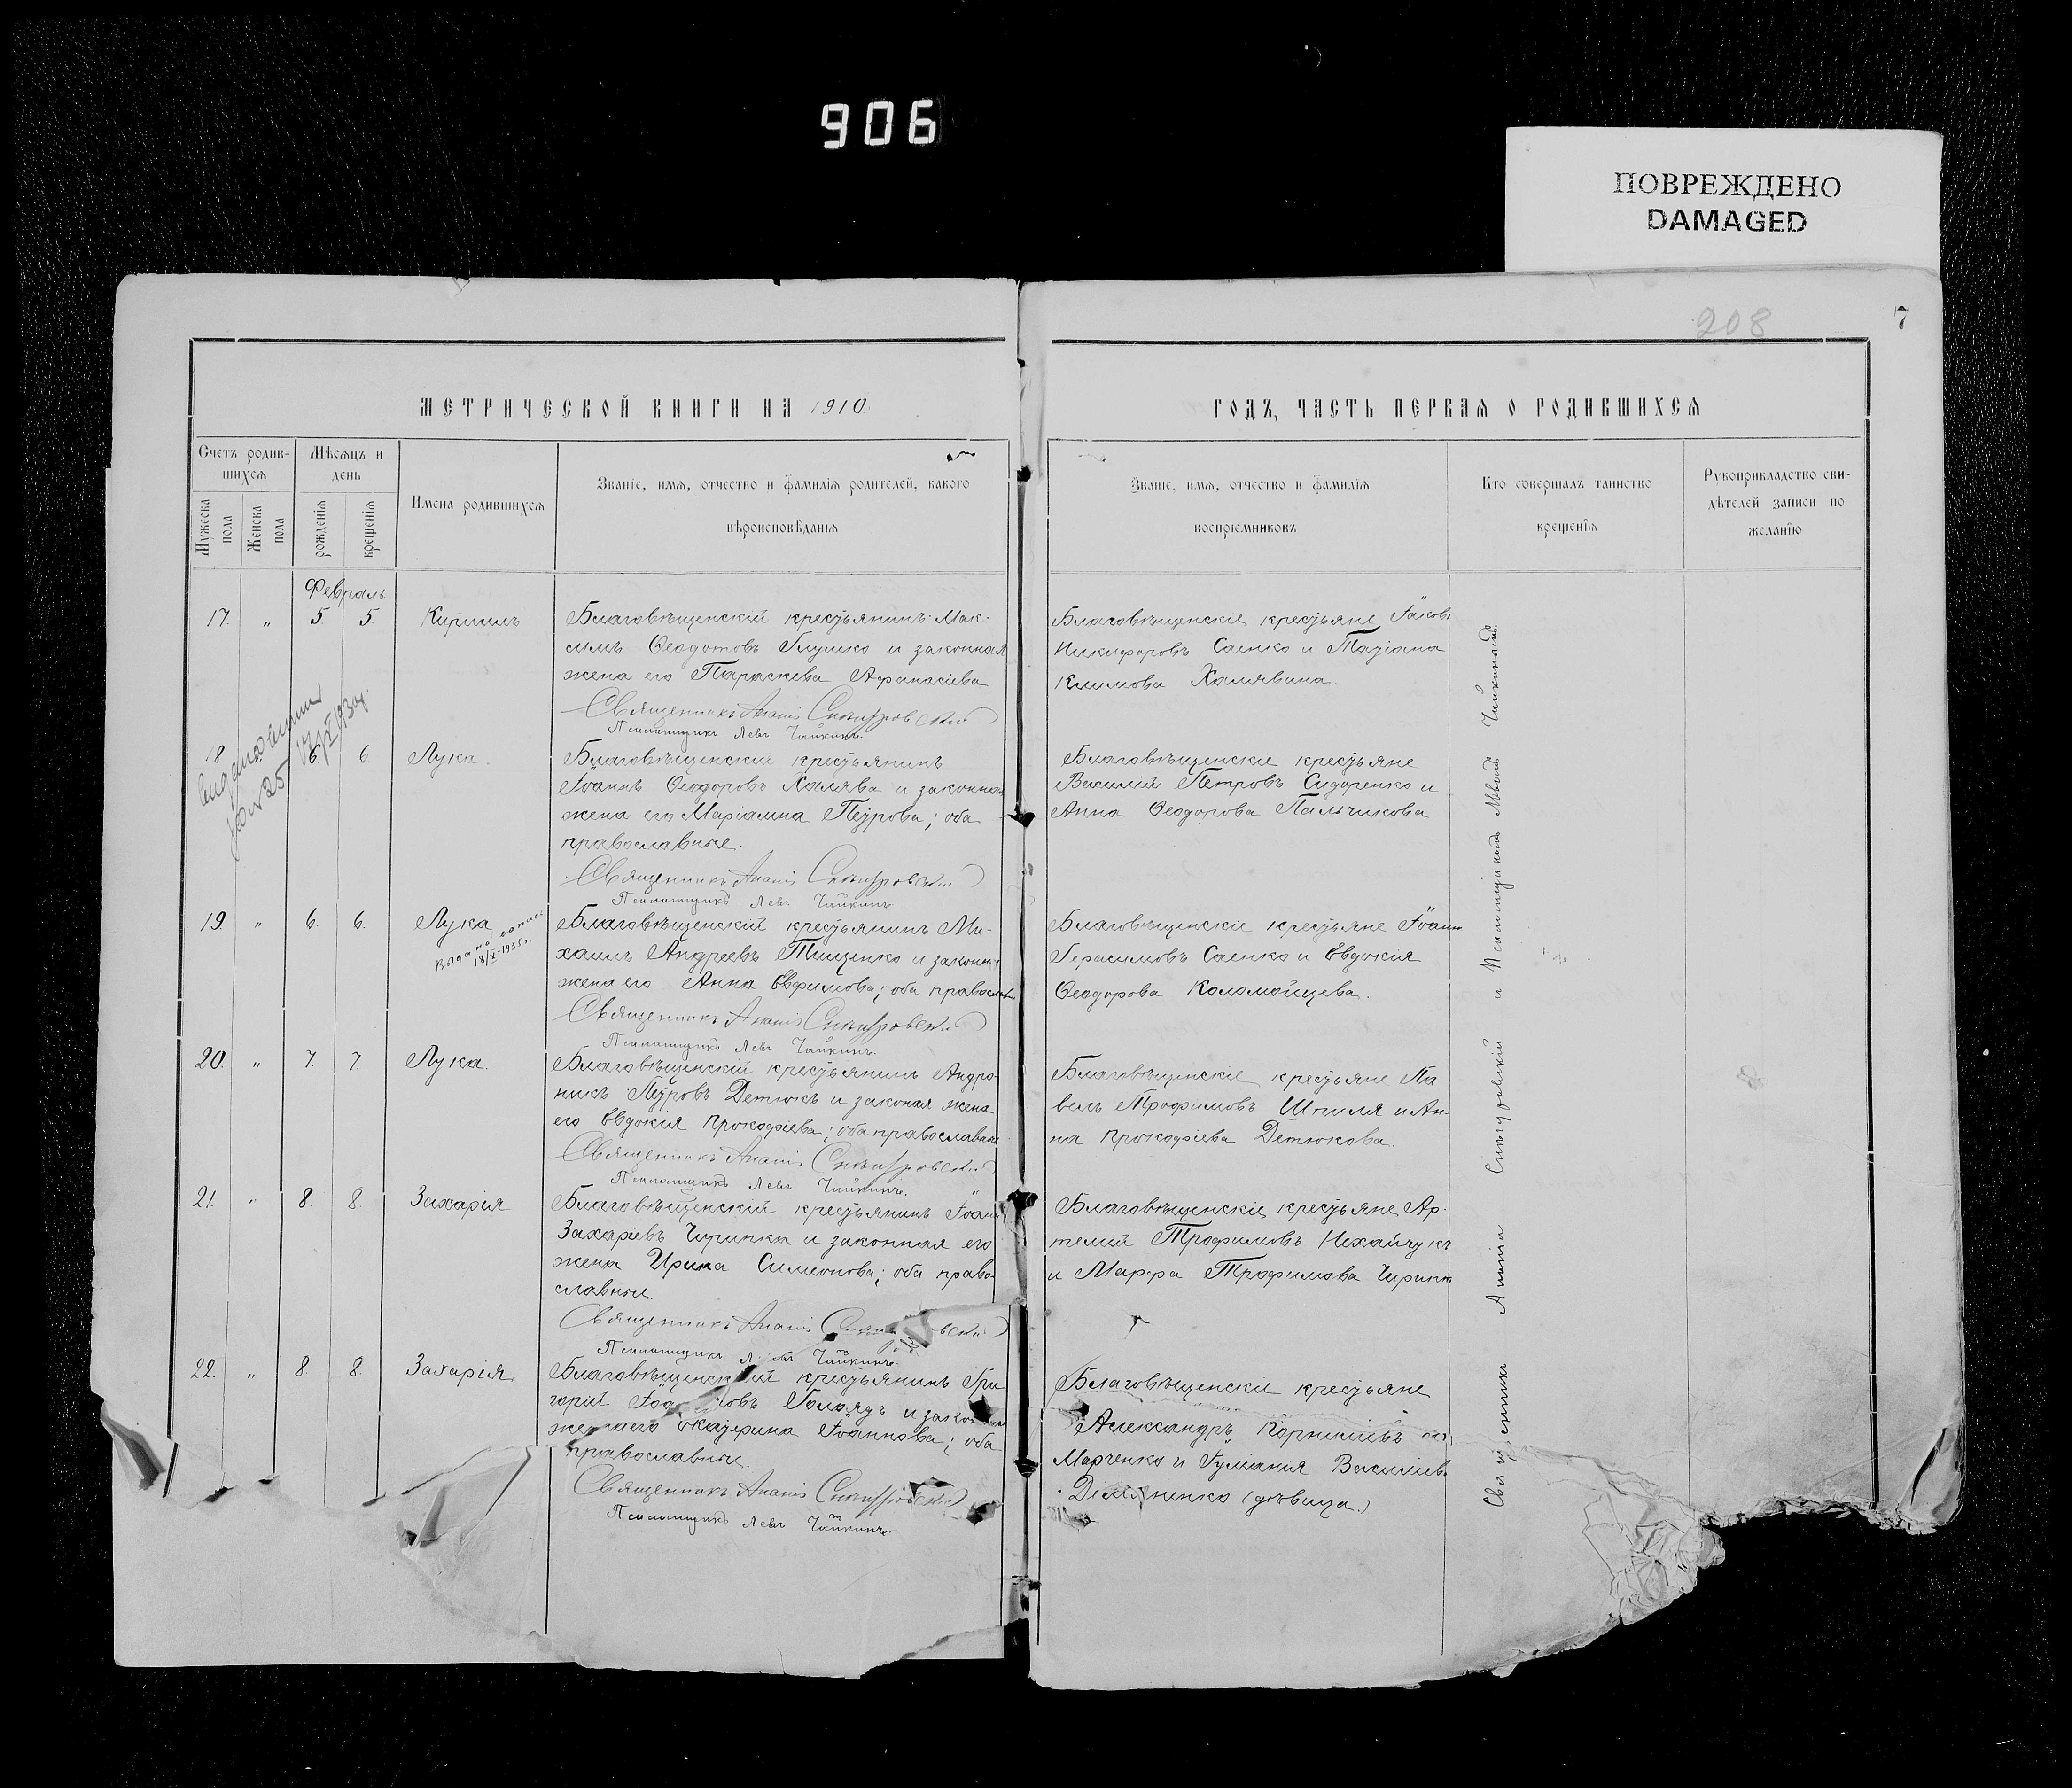 906
ПОВРЕЖДЕНО
DAMAGED
208
7
МЕТРИЧЕСКОЙ КНИГИ НА 1910
ГОДЪ, ЧАСТЬ ПЕРВАЯ О РОДИВШИХСЯ
Счетъ родив-
шихся
Мужеска
пола
Женска
пола
Мѣсяцъ и
день
рожденія
крещенія
Имена родившихся
Званіе, имя, отчество и фамилія родителей, какого
вѣроисповѣданія
Званіе, имя, отчество и фамилія
воспріемниковъ
Кто совершалъ таинство
крещенія
Рукоприкладство сви-
дѣтелей записи по
желанію
Февраль
17. " 5. 5. Кириллъ
Благовѣщенскій крестьянинъ Мак-
симъ Ѳеодотовъ Глушко и законная
жена его Параскева Афанасіева
Священникъ Ананія Снѣгуровскій
Псаломщикъ Левъ Чайкинъ.
Благовѣщенскіе крестьяне Іаковъ
Никифоровъ Саенко и Татіана
Климова Халявина.
18 6. 6. Лука.
Благовѣщенскій крестьянинъ
Іоаннъ Ѳеодоровъ Халява и законная
жена его Маріамна Петрова; оба
православные.
Священникъ Ананія Снѣгуровскій
Псаломщикъ Левъ Чайкинъ
Благовѣщенскіе крестьяне
Василій Петровъ Сидоренко и
Анна Ѳеодорова Пальчикова
19. " 6. 6. Лука
18/X-1935г.
Благовѣщенскій крестьянинъ Ми-
хаилъ Андреевъ Тищенко и законн
жена его Анна Евфимова; оба православ
Священникъ Ананія Снѣгуровскій
Псаломщикъ Левъ Чайкинъ.
Благовѣщенскіе крестьяне Іоанн
Герасимовъ Саенко и Евдокія
Ѳеодорова Коломойцева.
20. " 7. 7. Лука.
Благовѣщенскій крестьянинъ Андро-
никъ Петровъ Детюкъ и законая жена
его Евдокія Прокофіева; оба православные
Священникъ Ананія Снѣгуровскій
Псаломщикъ Левъ Чайкинъ.
Благовѣщенскіе крестьяне Па
велъ Трофимовъ Шпиля и Ан-
на Прокофіева Детюкова.
21. " 8. 8. Захарія
Благовѣщенскій крестьянинъ Іоаннъ
Захаріевъ Чирипка и законная его
жена Ирина Симеонова; оба право-
славные.
Священникъ Ананія
Псаломщикъ Левъ Чайкинъ.
Благовѣщенскіе крестьяне Ар-
темій Трофимовъ Нехайчукъ
и Марфа Трофимова Чирипк
22. " 8 8. Захарія
Благовѣщенскій крестьянинъ Гри
горій и закон
жена его Екатерина Іоаннова; оба
православные.
Священникъ Ананія Снѣгуровскій
Псаломщикъ Левъ Чайкинъ.
Благовѣщенскіе крестьяне
Александръ Корниліевъ
Марченко и Іуліанія Василіев
(дѣвица.)
Священникъ Ананія Снѣгуровскій и Псаломщикъ Левъ Чайкинъ.